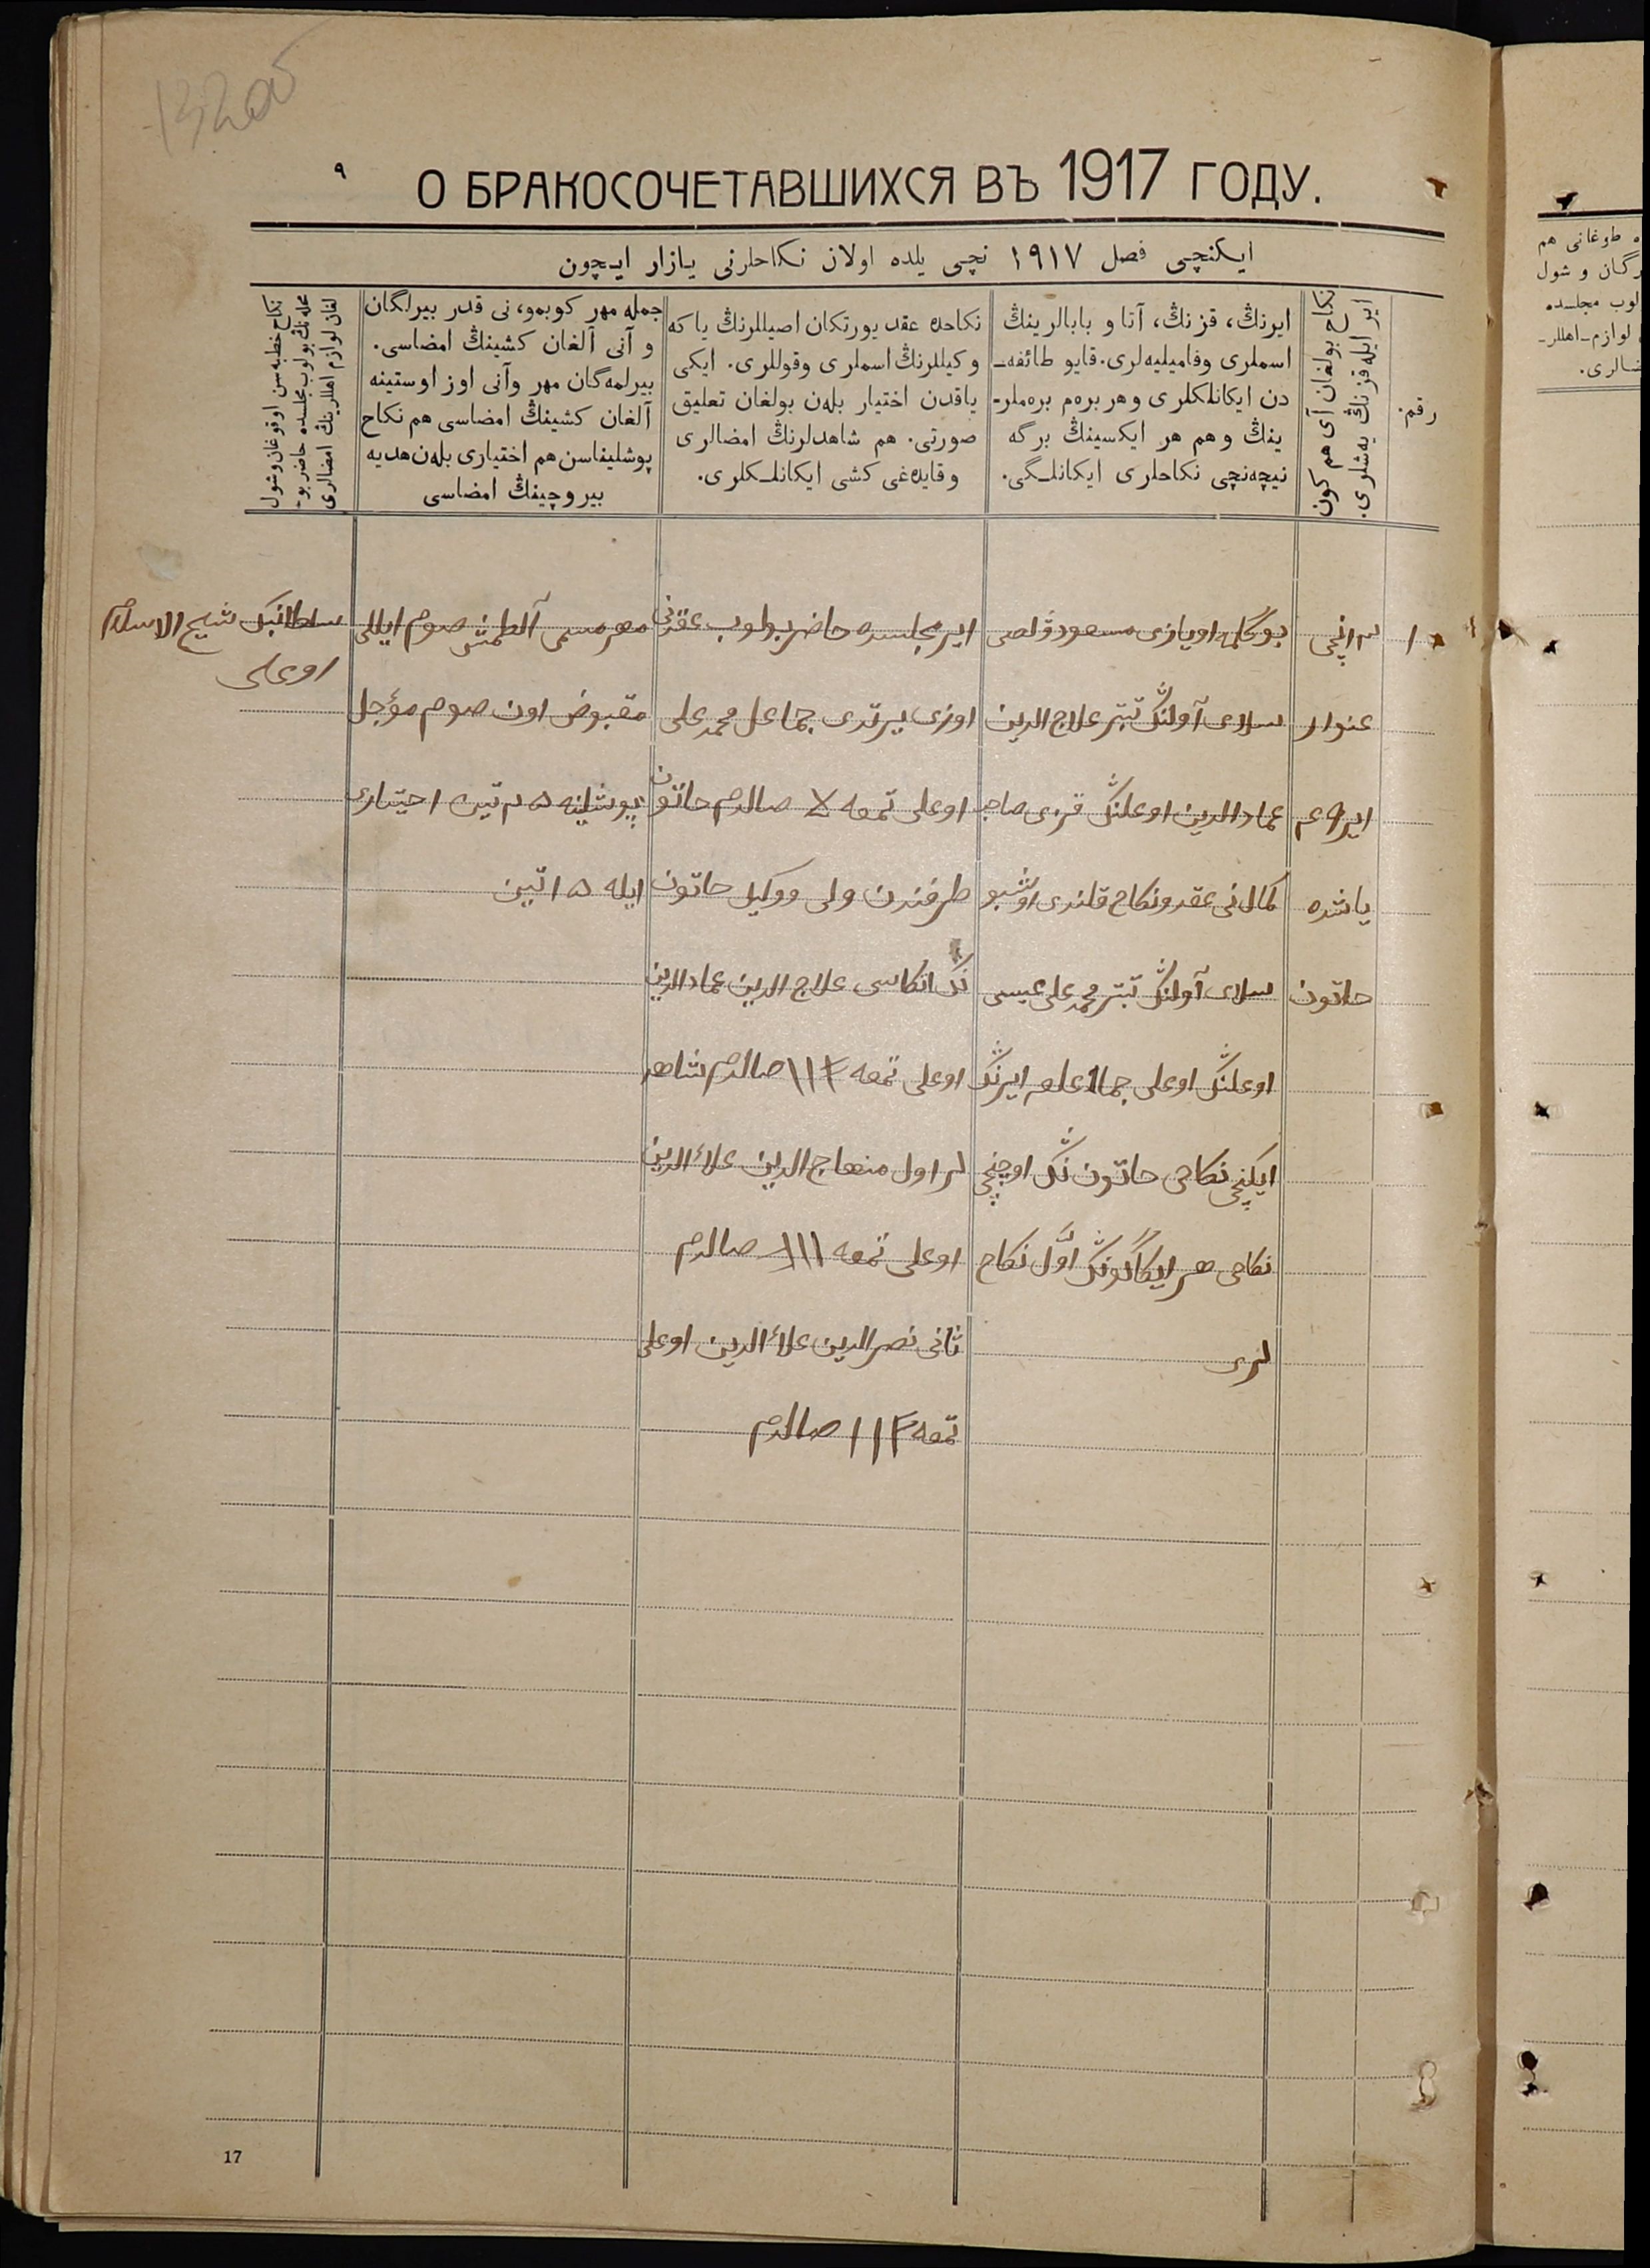 О БРАКОСОЧЕТАВШИХСЯ ВЪ 1917 ГОДУ.
٩
ایکنچی فصل ١٩١٧ نچی یلده اولان نکاحلرنی یازار ایچون
رقم.
نکاح بولغان آی هم کون
ایر ایله قز نڭ یەشلری.
ایرنڭ، قز نڭ، آتا و بابالرینڭ
اسملری وفامیلیه‌لری. قایو طائفه‌ـ
دن ایکانلکلری وهر بره‌م بره‌ملرـ
ینڭ وهم هر ایکسینڭ برگه
نیچه‌نچی نکاحلری ایکانلـگی.
نکاحده عقد یورتکان اصیللرنڭ یاکه
وکیللرنڭ اسملری وقوللری. ایکی
یاقدن اختیار بله‌ن بولغان تعلیق
صورتی. هم شاهدلرنڭ امضالری
وقایده‌غی کشی ایکانلـکلری.
جمله مهر کوبمو، نی قدر بیرلگان
و آنی آلغان کشینڭ امضاسی.
بیرلمه‌گان مهر وآنی اوز اوستینه
آلغان کشینڭ امضاسی هم نکاح
پوشلیناسن هم اختیاری بله‌ن هدیه
بیروچینڭ امضاسی
نکاح خطبه‌سن اوقوغان وشول
محله‌نڭ بولوب مجلسده حاضر بوـ
لغان لوازم اهللرینڭ امضالری
١
عنوار
یاشده
حاتون
بوگلمه اویازی مسعود ولصی
سلای آولنڭ تبتر علاج الدین
عماد الدین اوعلنڭ قزی صاحب
کمال نی عقد ونکاح قلندی اوشبو
سلای آولنڭ تبتر محمد علی عیسی
اوعلنڭ اوعلی جماعلعه ایرنڭ
ایکنچی نکاحی حاتون نڭ اوچنچی
نکاحی هر ایکاگونڭ اوّل نکاح
لری
ایر مجلسده حاضر بولوب عقدنی
اوزی یرتدی جماعل محمد علی
اوعلی تمعه صالدم حاتون
طرفندن ولی ووکیل حاتون
نڭ انکاسی علاج الدین عماد الدین
اوعلی تمعه صالدم شاهد
لر اول منهاج الدین علاء الدین
اوعلی تمعه صالدم
ثانی نصر الدین علاء الدین اوعلی
تمعه صالدم
مهر مسمی آلطمش صوم ایللی
مقبوض اون صوم مؤجل
پوشلینه ٢٥ تین احتیاری
ایله ١٥ تین
سلطانبک شیح الاسلام
اوعلی
17